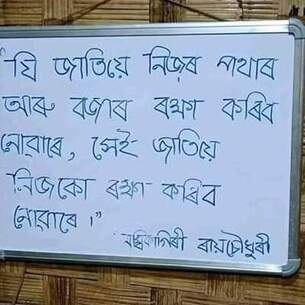 "যি জাতিয়ে নিজৰ পথাৰ
আৰু বজাৰ ৰক্ষা কৰিব
নোৱাৰে, সেই জাতিয়ে
নিজকো ৰক্ষা কৰিব
নোৱাৰে।"
অম্বিকাগিৰী ৰায়চৌধুৰী